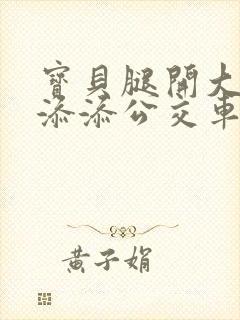 寶貝腿開大
添添公交車
黃子娟